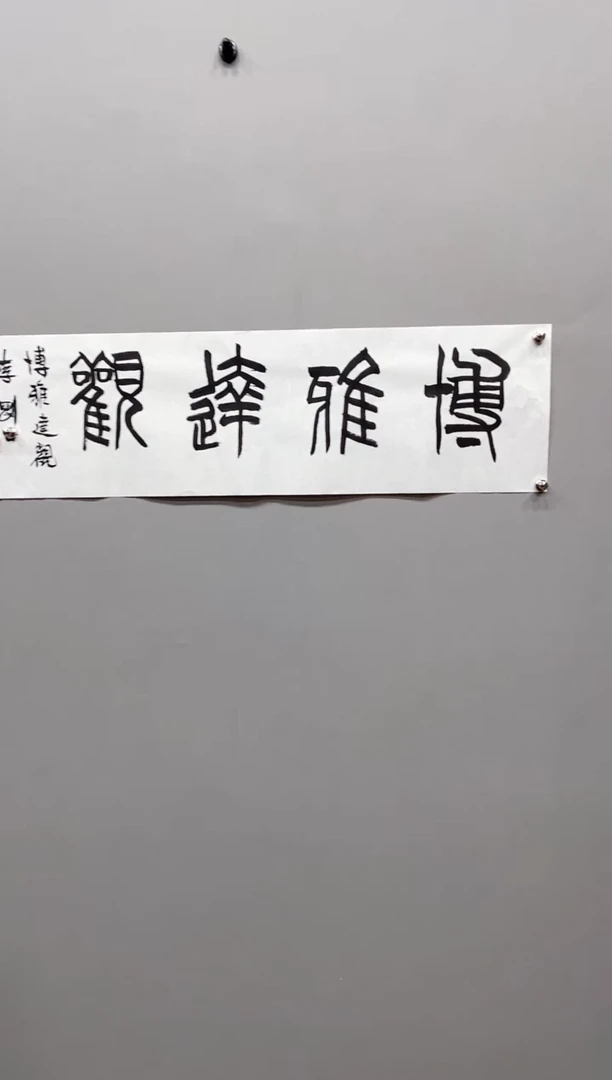 博雅達觀
博雅達觀